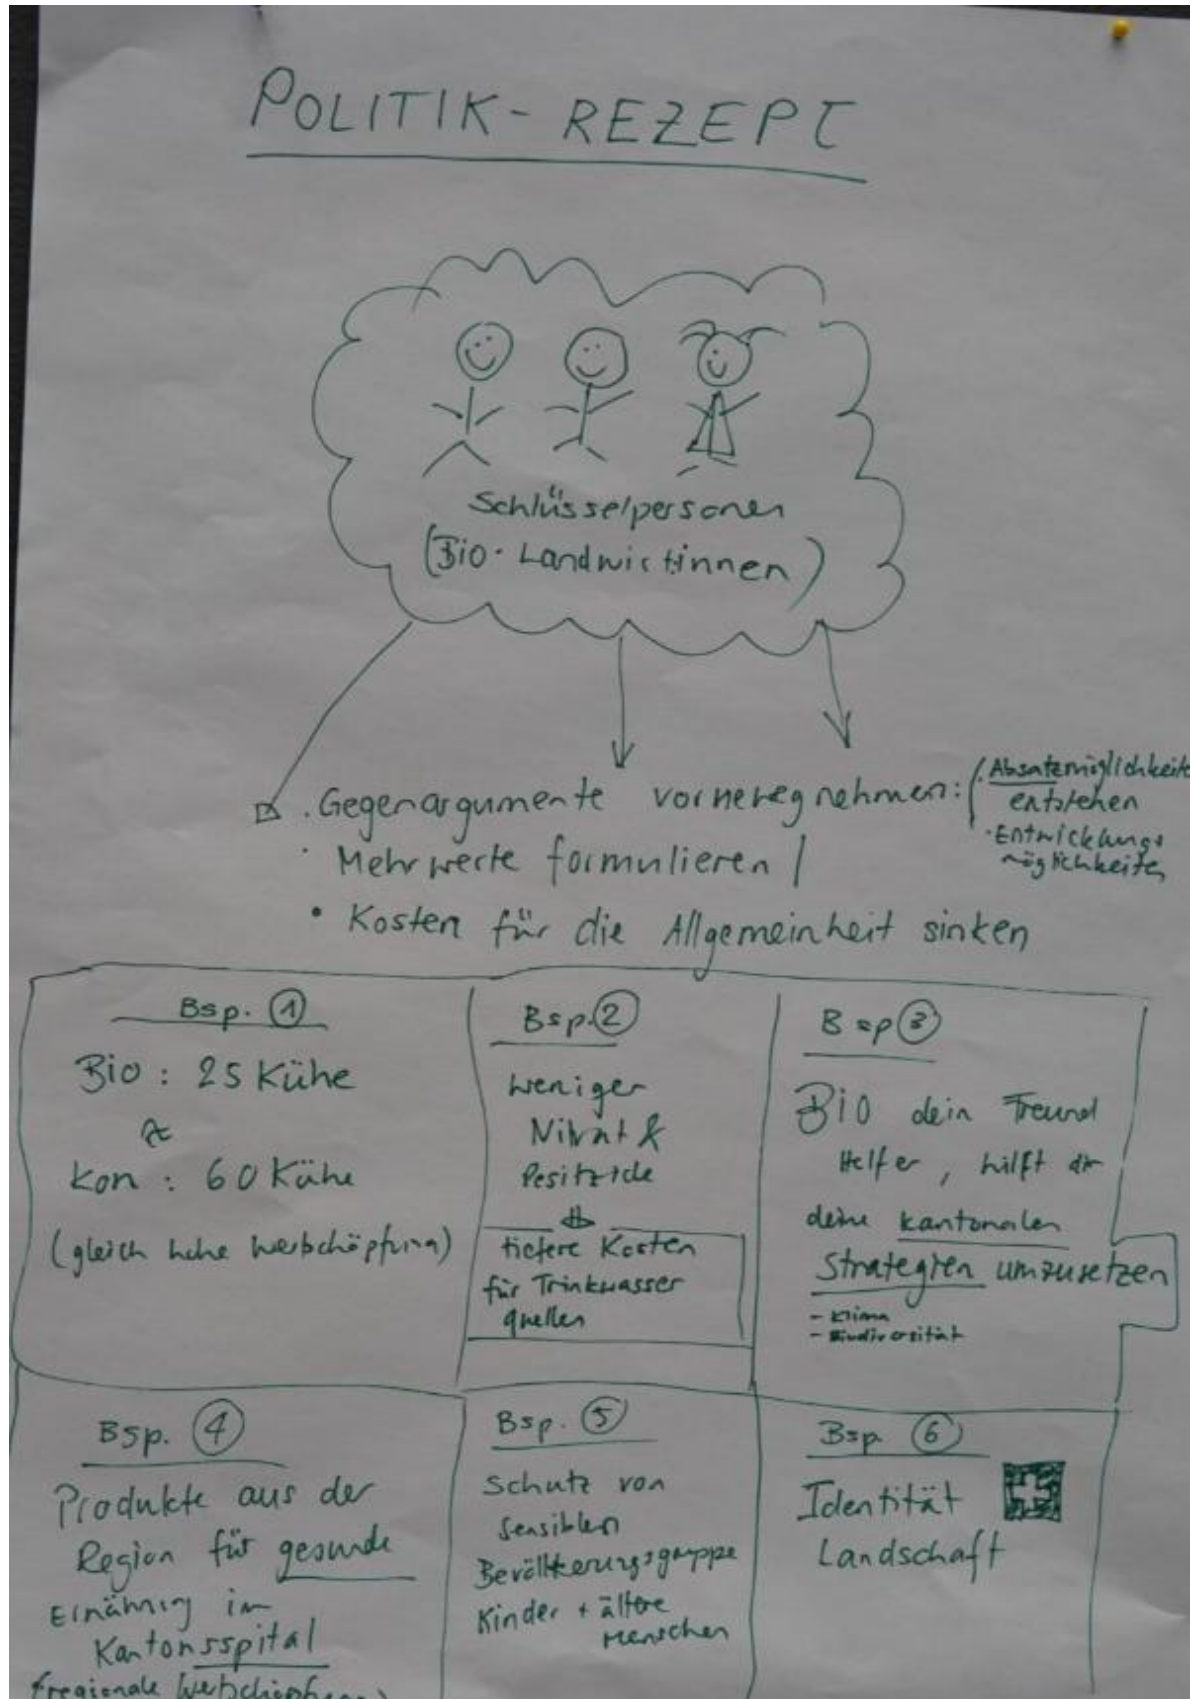 POLITIK - REZEPT
Schlüsselpersonen
(Bio- Landwirtinnen)
· Gegenargumente vorneweg nehmen:
· Absatzmöglichkeite
entstehen
· Entwicklungs
möglichkeiten
· Mehrwerte formulieren
• Kosten für die Allgemeinheit sinken
Bsp. 1
Bio : 25 Kühe
≈
kon : 60 Kühe
(gleich hohe Wertschöpfung)
Bsp. 2
weniger
Nitrat &
Pesitzide
tiefere Kosten
für Trinkwasser
quellen
Bsp 3
BiO dein Freund
Helfer, hilft dir
deine kantonalen
Strategien umzusetzen
- Klima
- Biodiversität
Bsp. 4
Produkte aus der
Region für gesunde
Ernährung im
Kantonsspital
(regionale Wertschöpfung)
Bsp. 5
Schutz von
sensiblen
Bevölkerungsgruppe
Kinder + ältere
Menschen
Bsp 6
Identität
Landschaft